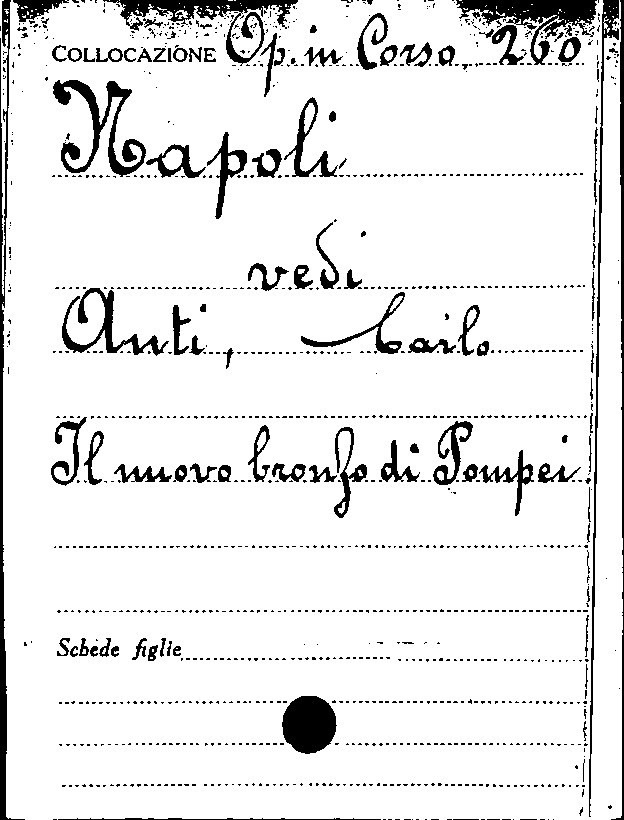 COLLOCAZIONE Op. in Corso 260
Napoli
vedi
Anti, Carlo
Il nuovo bronzo di Pompei.
Schede figlie